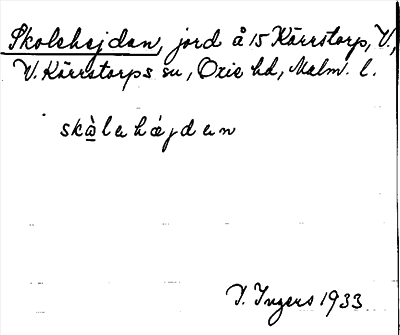 Skolehejdan, jord å 15 Kärrstorp, V.,
V. Kärrstorps sn, Oxie hd, Malm. l.
I. Ingers 1933